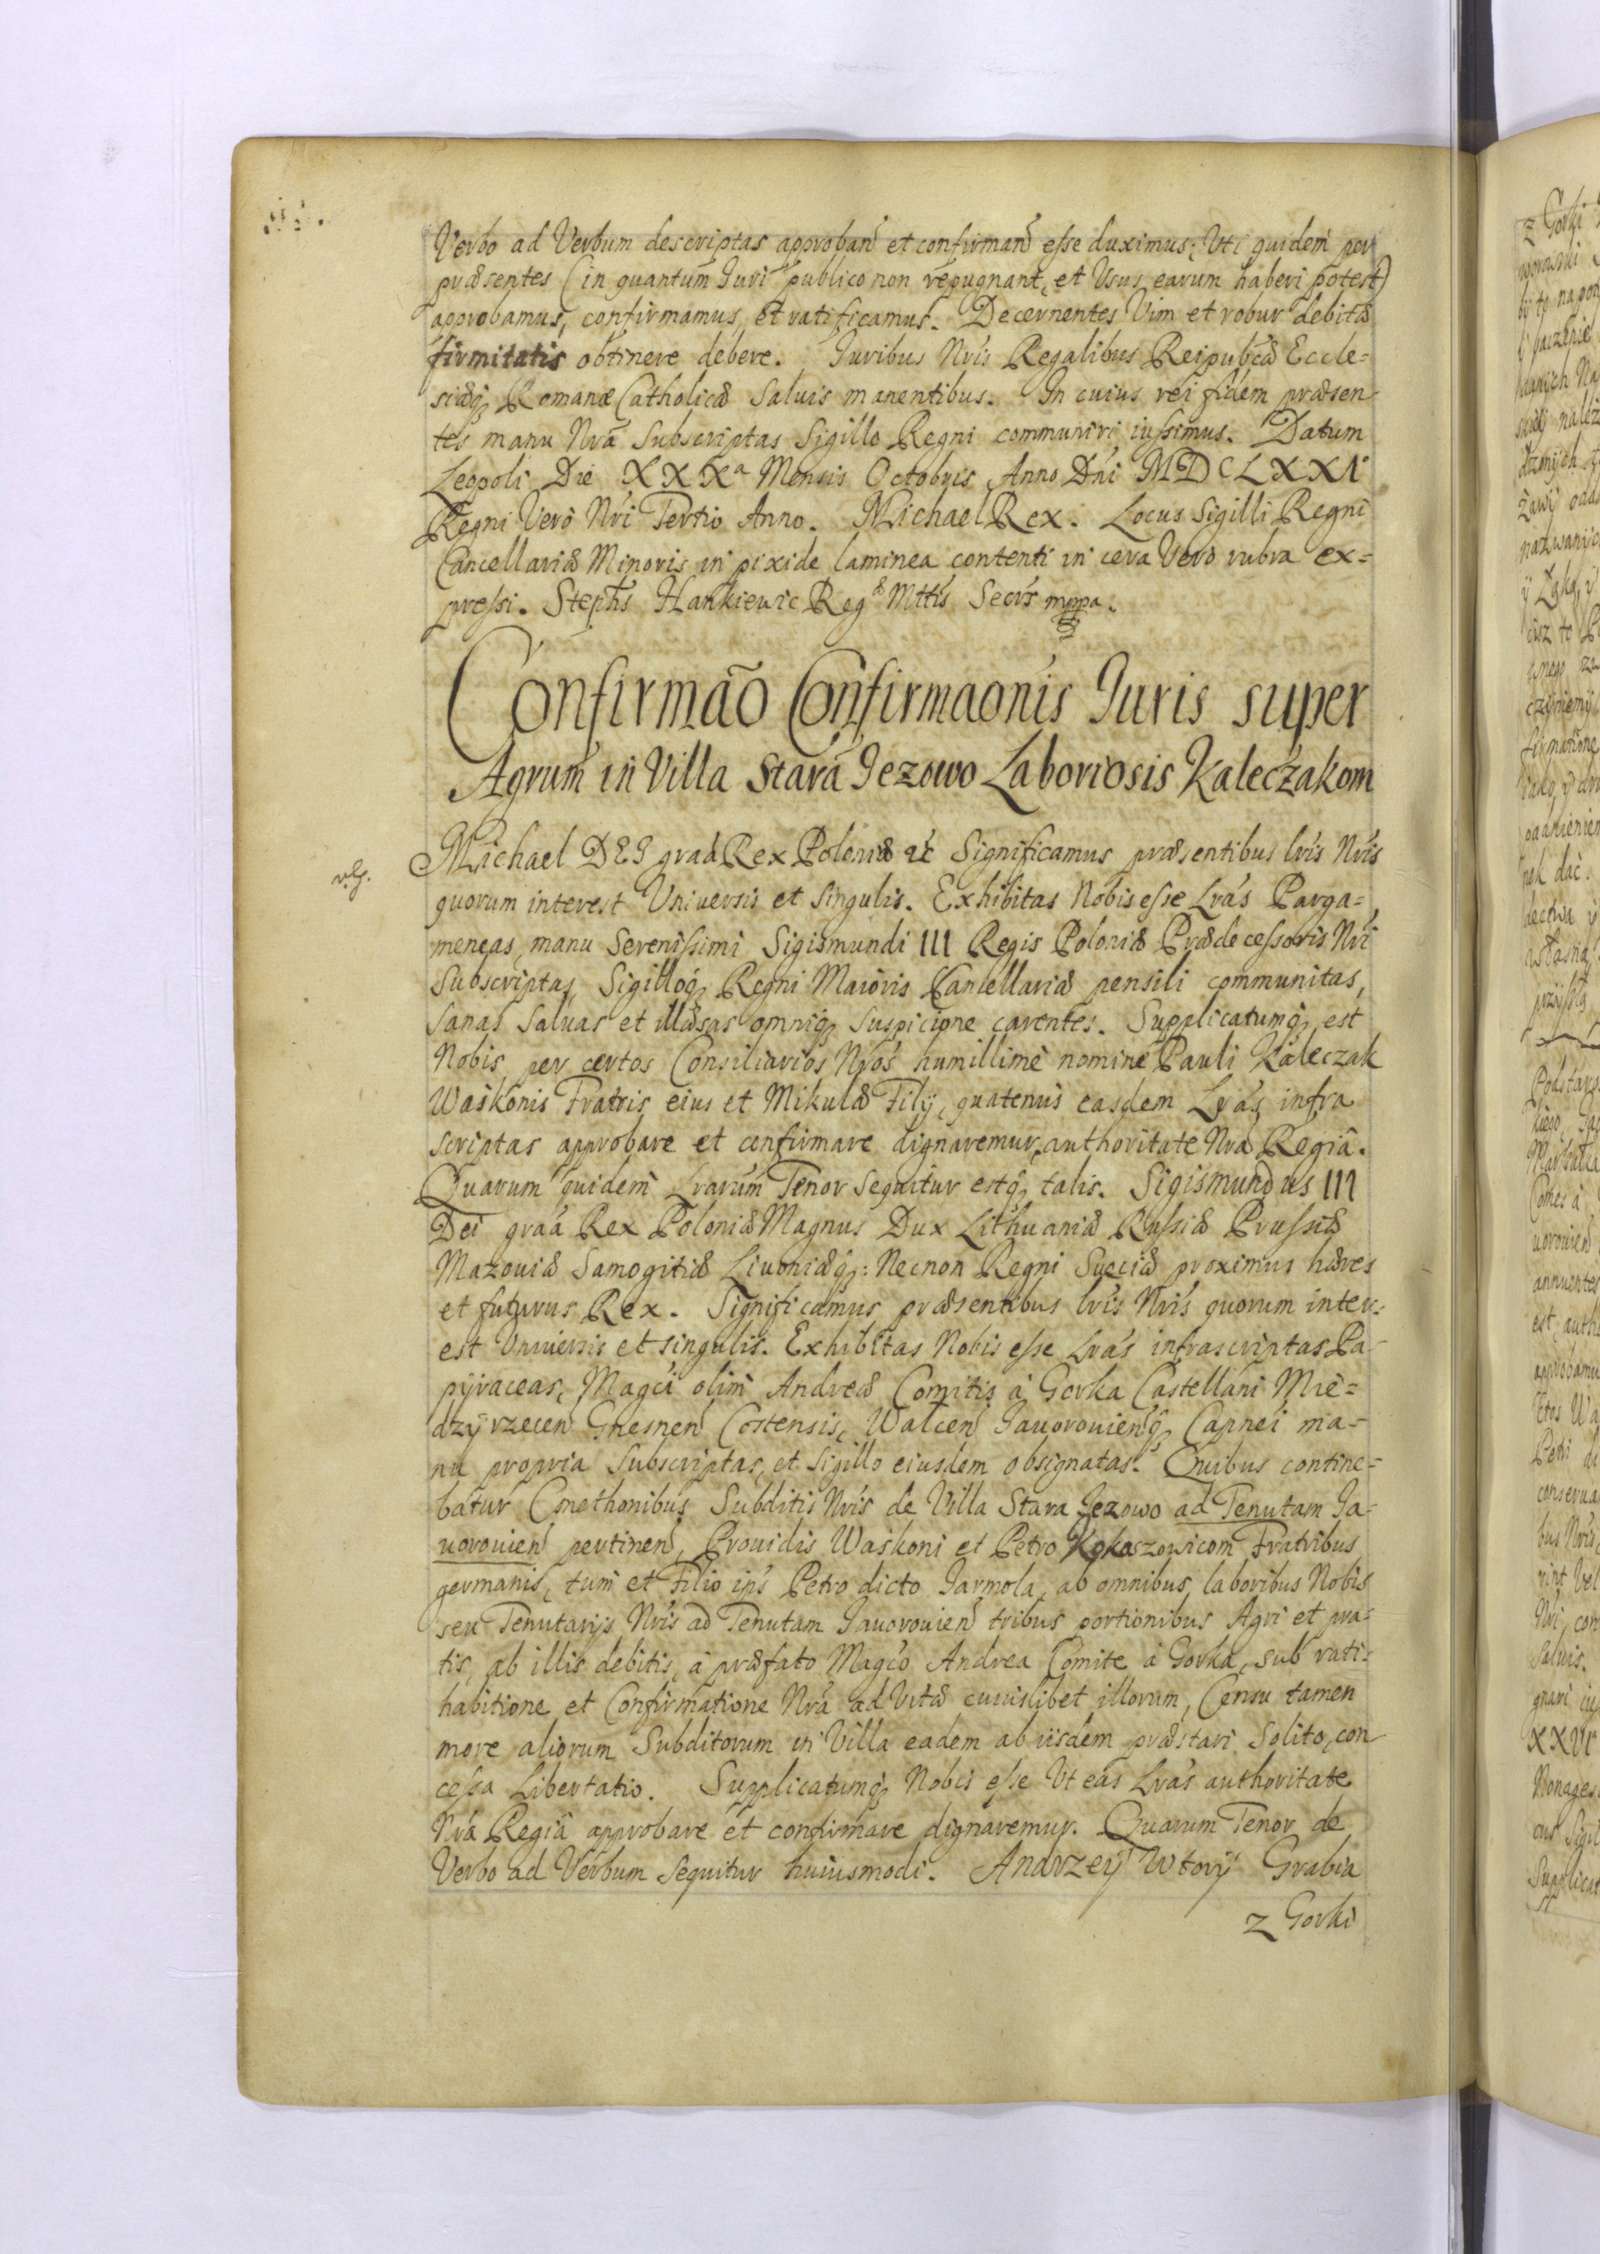 Verbo ad Verbum descriptas approban̄ et confirman̄ esse duximus: Uti quidem per
præsentes (in quantum Iuri publico non repugnant, et Usus earum haberi potest)
approbamus, confirmamus, et ratificamus. Decernentes Vim et robur debitæ
firmitatis obtinere debere. Iuribus Nrīs Regalibus Reipubcæ Eccle=
siæq̨ Romanæ Catholicæ Saluis manentibus. In cuius rei fidem præsen-
tes manu Nrā Subscriptas Sigillo Regni communiri iussimus. Datum
Leopoli Die XXXa Mensis Octobris Anno Dn̄i MDCLXXI
Regni Vero Nri Tertio Anno. Michael Rex. Locus Sigilli Regni
Cancellariæ Minoris in pixide laminea contenti in cera Vero rubra ex=
pressi. Stephs Hankiewic Reg Mttis Secrs mppa.
Confirmaō Confirmaonis Iuris super
Agrum in Villa Stara Jezowo Laboriosis Kaleczakom
Michael DEI graā Rex Poloniæ etc Significamus præsentibus lris Nris
quorum interest Universis et Singulis. Exhibitas Nobis esse Lrās Parga=
meneas, manu Serenissimi Sigismundi III Regis Poloniæ Prædecessoris Nri
Subscriptas, Sigilloq̨ Regni Maioris Cancellariæ pensili communitas,
Sanas Saluas et illæsas omniq̨ Suspicione carentes. Supplicatumq̨ est
Nobis per certos Consiliarios Nros humillimè nomine Pauli Kaleczak
Waskonis Fratris eius et Mikulæ Filij, quatenus easdem Lrās infra
scriptas approbare et confirmare dignaremur, authoritate Nrā Regiâ.
Quarum quidem Lrarum Tenor Sequitur estq̨ talis. Sigismundus III
Dei graā Rex Poloniæ Magnus Dux Lithuaniæ Russiæ Prussiæ
Mazouiæ Samogitiæ Liuoniæq̨: Necnon Regni Sueciæ proximus hæres
et futurus Rex. Significamus præsentibus lris Nris quorum inter=
est Uniuersis et singulis. Exhibitas Nobis esse Lrās infrascriptas Pa-
pijraceas, Magci olim Andreæ Comitis à Gorka Castellani Mie=
dzijrzecen̄ Gnesnen̄ Costensis, Walcen̄ Iauorouien̄q̨ Capnei ma=
nu propria Subscriptas, et Sigillo eiusdem obsignatas. Quibus contine=
batur Cmethonibus Subditis Nris de Villa Stara Jezowo ad Tenutam Ia=
uorouien̄ pertinen̄, Prouidis Waskoni et Petro Kokoszowicom Fratribus
germanis, tum et Filio ips Petro dicto Jarmola, ab omnibus laboribus Nobis
seu Tenutarijs Nris ad Tenutam Iauorouien̄ tribus portionibus Agri et pra-
tis, ab illis debitis, à præfato Magco Andrea Comite à Gorka, sub rati=
habitione et Confirmatione Nrā ad Vitæ cuiuslibet illorum, Censu tamen
more aliorum Subditorum in Villa eadem ab iisdem præstari Solito, con-
cessa Libertatio. Supplicatumq̨ Nobis esse Ut eas Lrās authoritate
Nrā Regiâ approbare et confirmare dignaremur. Quarum Tenor de
Verbo ad Verbum Sequitur huiusmodi. Andrzeij Wtorij Grabia
z Gorki